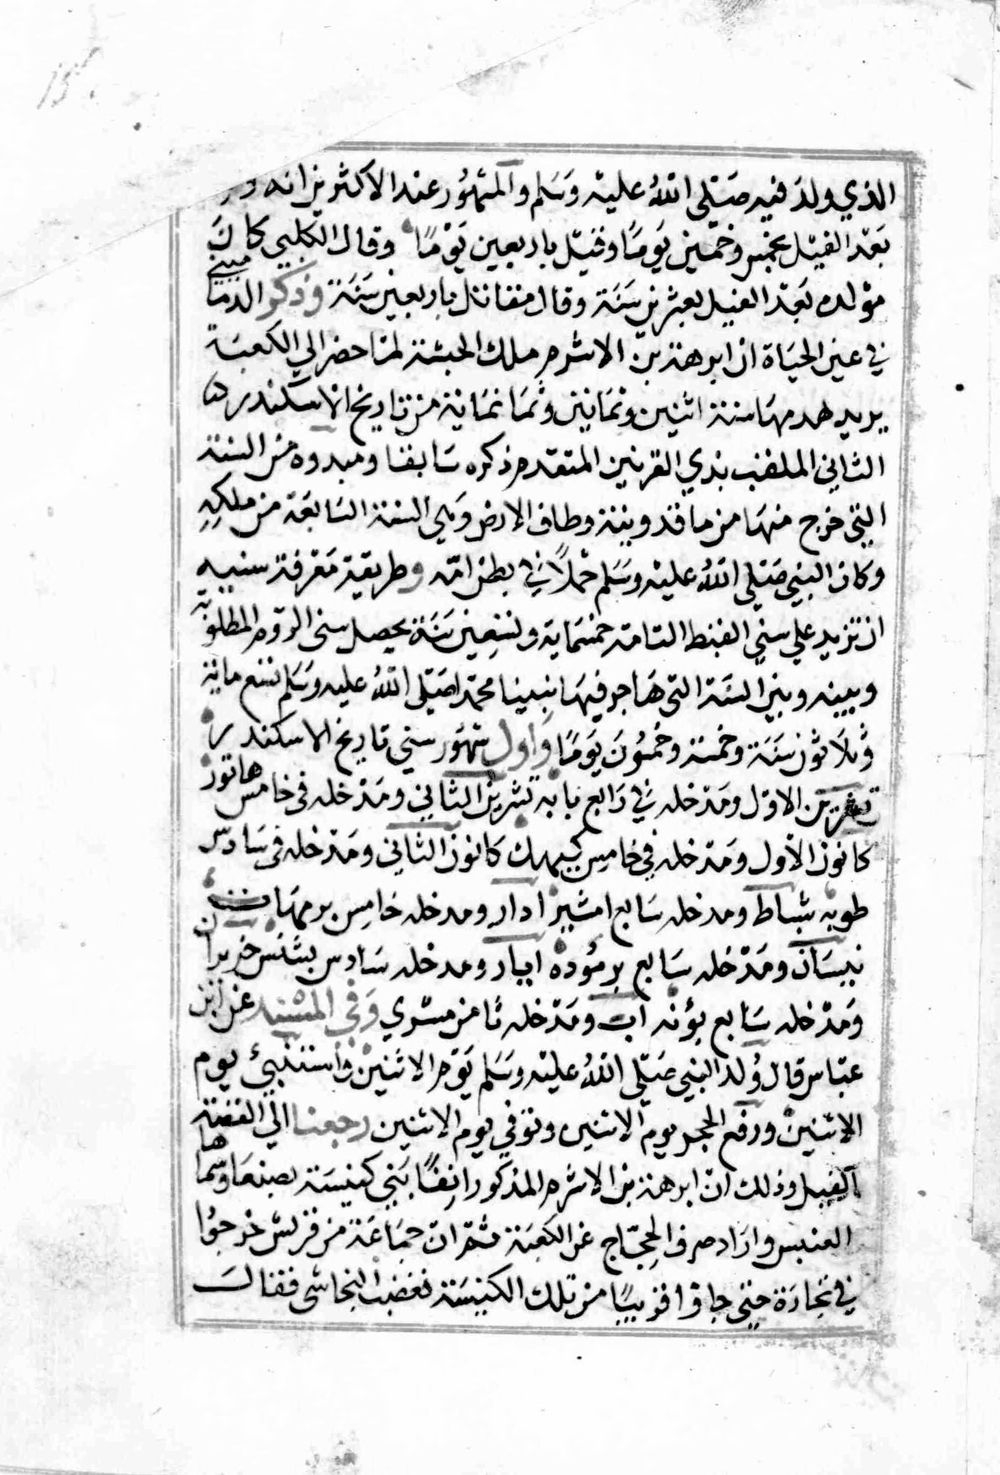 الذي ولد فيه صَلّى اللهُ عليْه وَسَلم والمشهُور عند الاكثرين انه
بَعْد الفيل بخمسٍ وخمسين يَومًا وقيْل باربعين يَوْمًا وقال الكلبي كانَ
مولده بَعْد الفيل بعشرين سَنَة وقال مقاتل باربعين سَنَة وذكر الدمَاميني
في عين الحيَاة ان ابرهة بن الاشرم ملك الحبشة لمّا حضر الي الكعبَة
يريد هدمهَا سنة اثنين وثمانين وثمَانمَاية من تاريخ الاسكندر
الثاني الملقب بذي القرنين المتقدم ذكره سَابقا ومبدوه من السنة
التي خرج منهَا من ماقدوينة وطاف الارض وَهي السنة السَابعَة من ملكهِ
وكان النبي صَلّى اللهُ عليْه وسَلم حمْلًا في بطن امّه وطريقة مَعْرفة سنيه
ان تزيد علي سني القبط التامة خمسمَاية وتسْعين سَنَة يحصل سني الرّوم المطلوبة
وبينه وبين السَنة التي هَاجر فيهَا نبينا محمّد صَلّى اللهُ عليه وسَلم تسع ماية
وثلَاثون سَنَة وخمسَة وخمسُونَ يَومًا وَاول شهُور سني تاريخ الاسكندر
تشرين الاوّل ومَدْخله في رَابع بابه تشرين الثاني ومَدْخله في خامس هاتور
كانون الأول ومَدْخله في خامس كيهك كانون الثاني ومَدْخله في سَادس
طوبه شباط ومدخله سَابع امشير ادار ومدخله خامس برمهَات
نيسَان ومَدْخله سَابع برمُوده ايار ومدخله سَادس بشنس حزيران
وَمَدْخله سَابع بؤنه اب ومَدْخله ثامن مسْري وَفي المسْند عن ابن
عبّاس قال وُلد النبي صَلّى اللهُ عليْه وَسَلم يَوْم الاثنين واستنبئ يوم
الاثنين ورفع الحجر يوم الاثنين وتوفي يوم الاثنين رجعنا الي القصّة
الفيل وذلك انّ ابرهة بن الاشرم المذكور انِفًا بَني كنيسَة بصنعَا وسماها
القليس وارَاد صرف الحجّاج عن الكعبَة فثم ان جمَاعَة من قريش خرجوا
في تجارَة حتي جاؤا قريبًا من تلك الكنيسَة فغضب النجاشي فقالَ